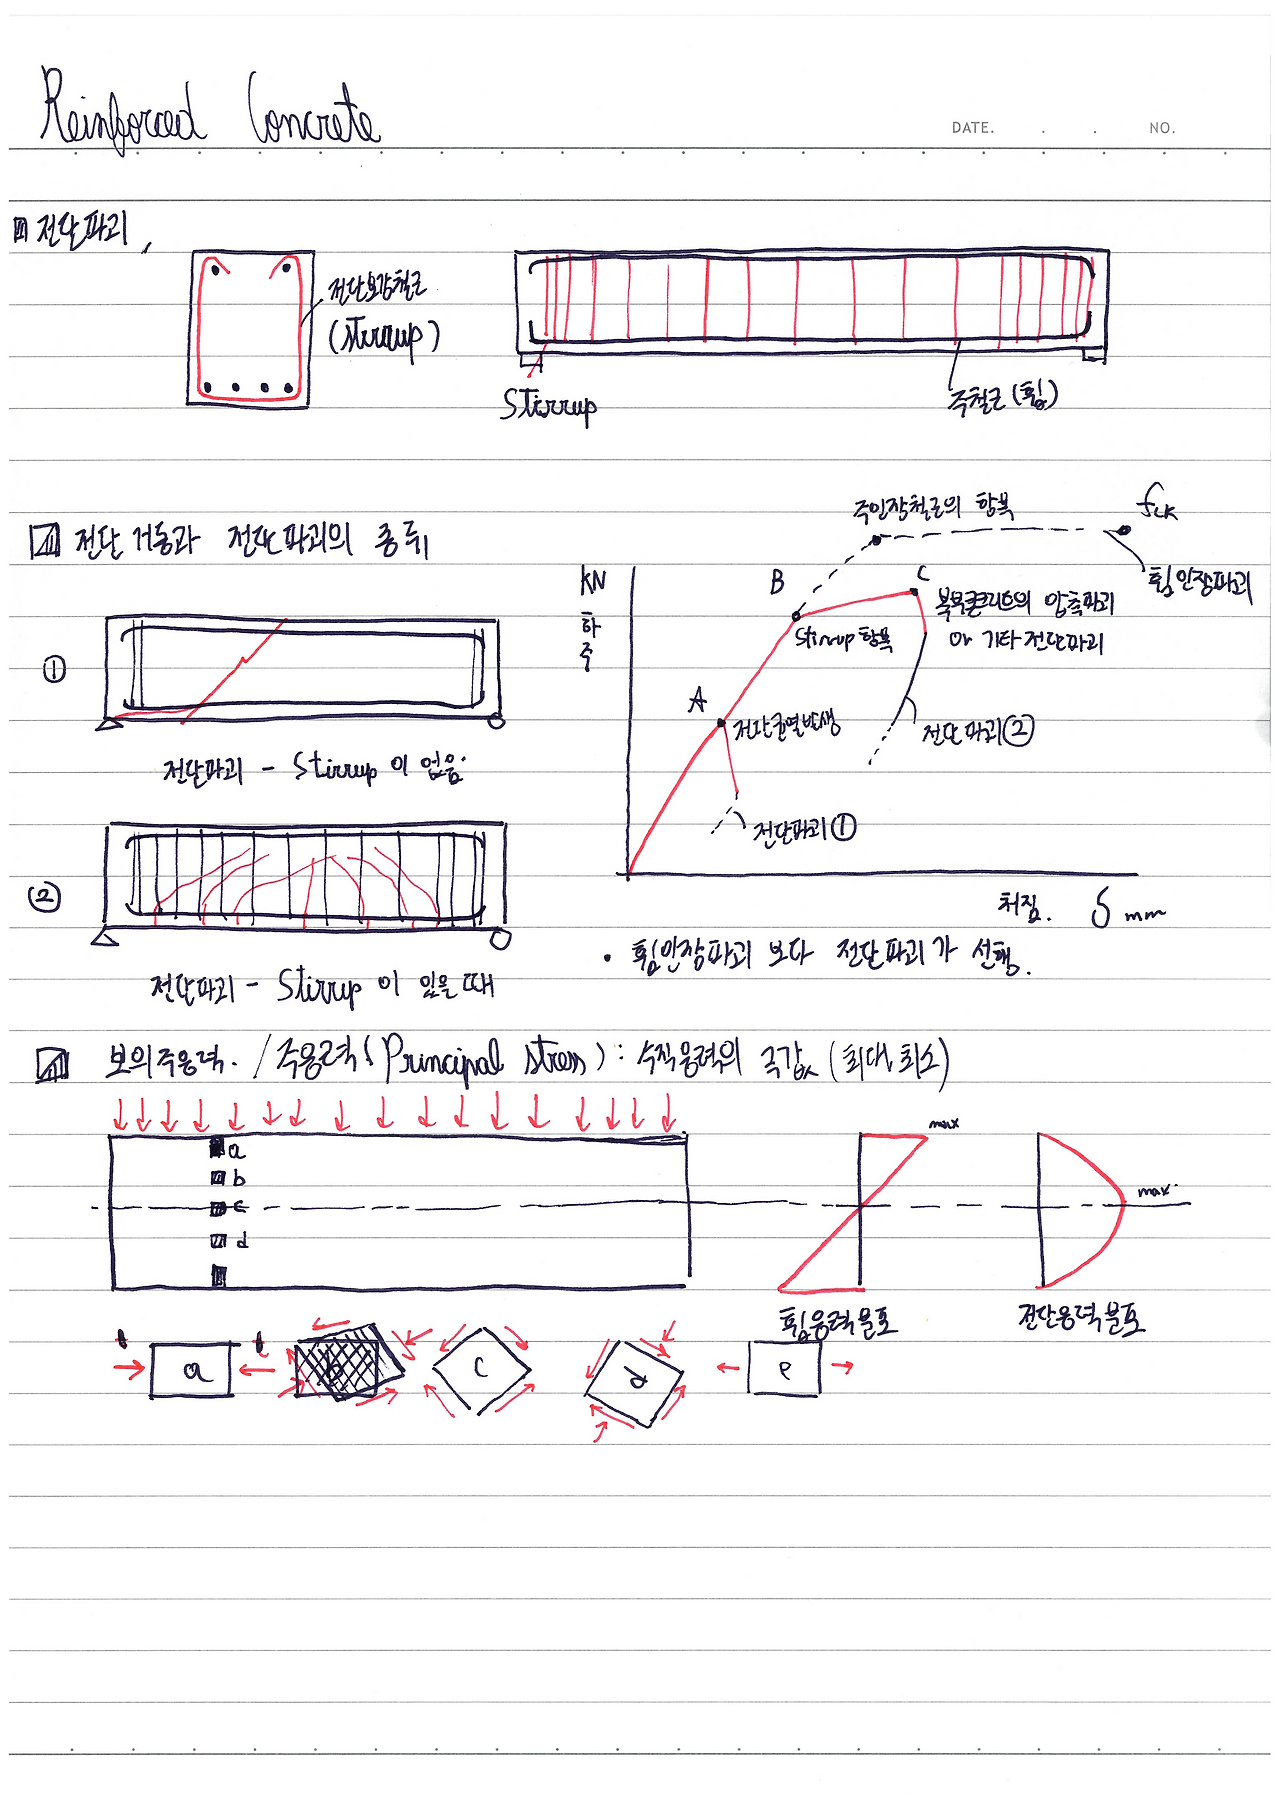 Reinforced Concrete
DATE. . . NO.
전단파괴
전단보강철근
(stirrup)
Stirrup
주철근 (휨)
전단 거동과 전단파괴의 종류
①
전단파괴 - Stirrup이 없음
②
전단파괴 - Stirrup이 있을때
kN
하
중
A
전단균열발생
전단파괴①
B
Stirrup 항복
주인장철근의 항복
C
복부콘크리트의 압축파괴
or 기타전단파괴
전단파괴②
fck
휨인장파괴
처짐. δ mm
• 휨인장파괴 보다 전단파괴가 선행.
보의주응력. / 주응력(Principal stress) : 수직응력의 극값 (최대, 최소)
a
b
c
d
max
max.
휨응력분포
전단응력분포
a
b
c
d
e